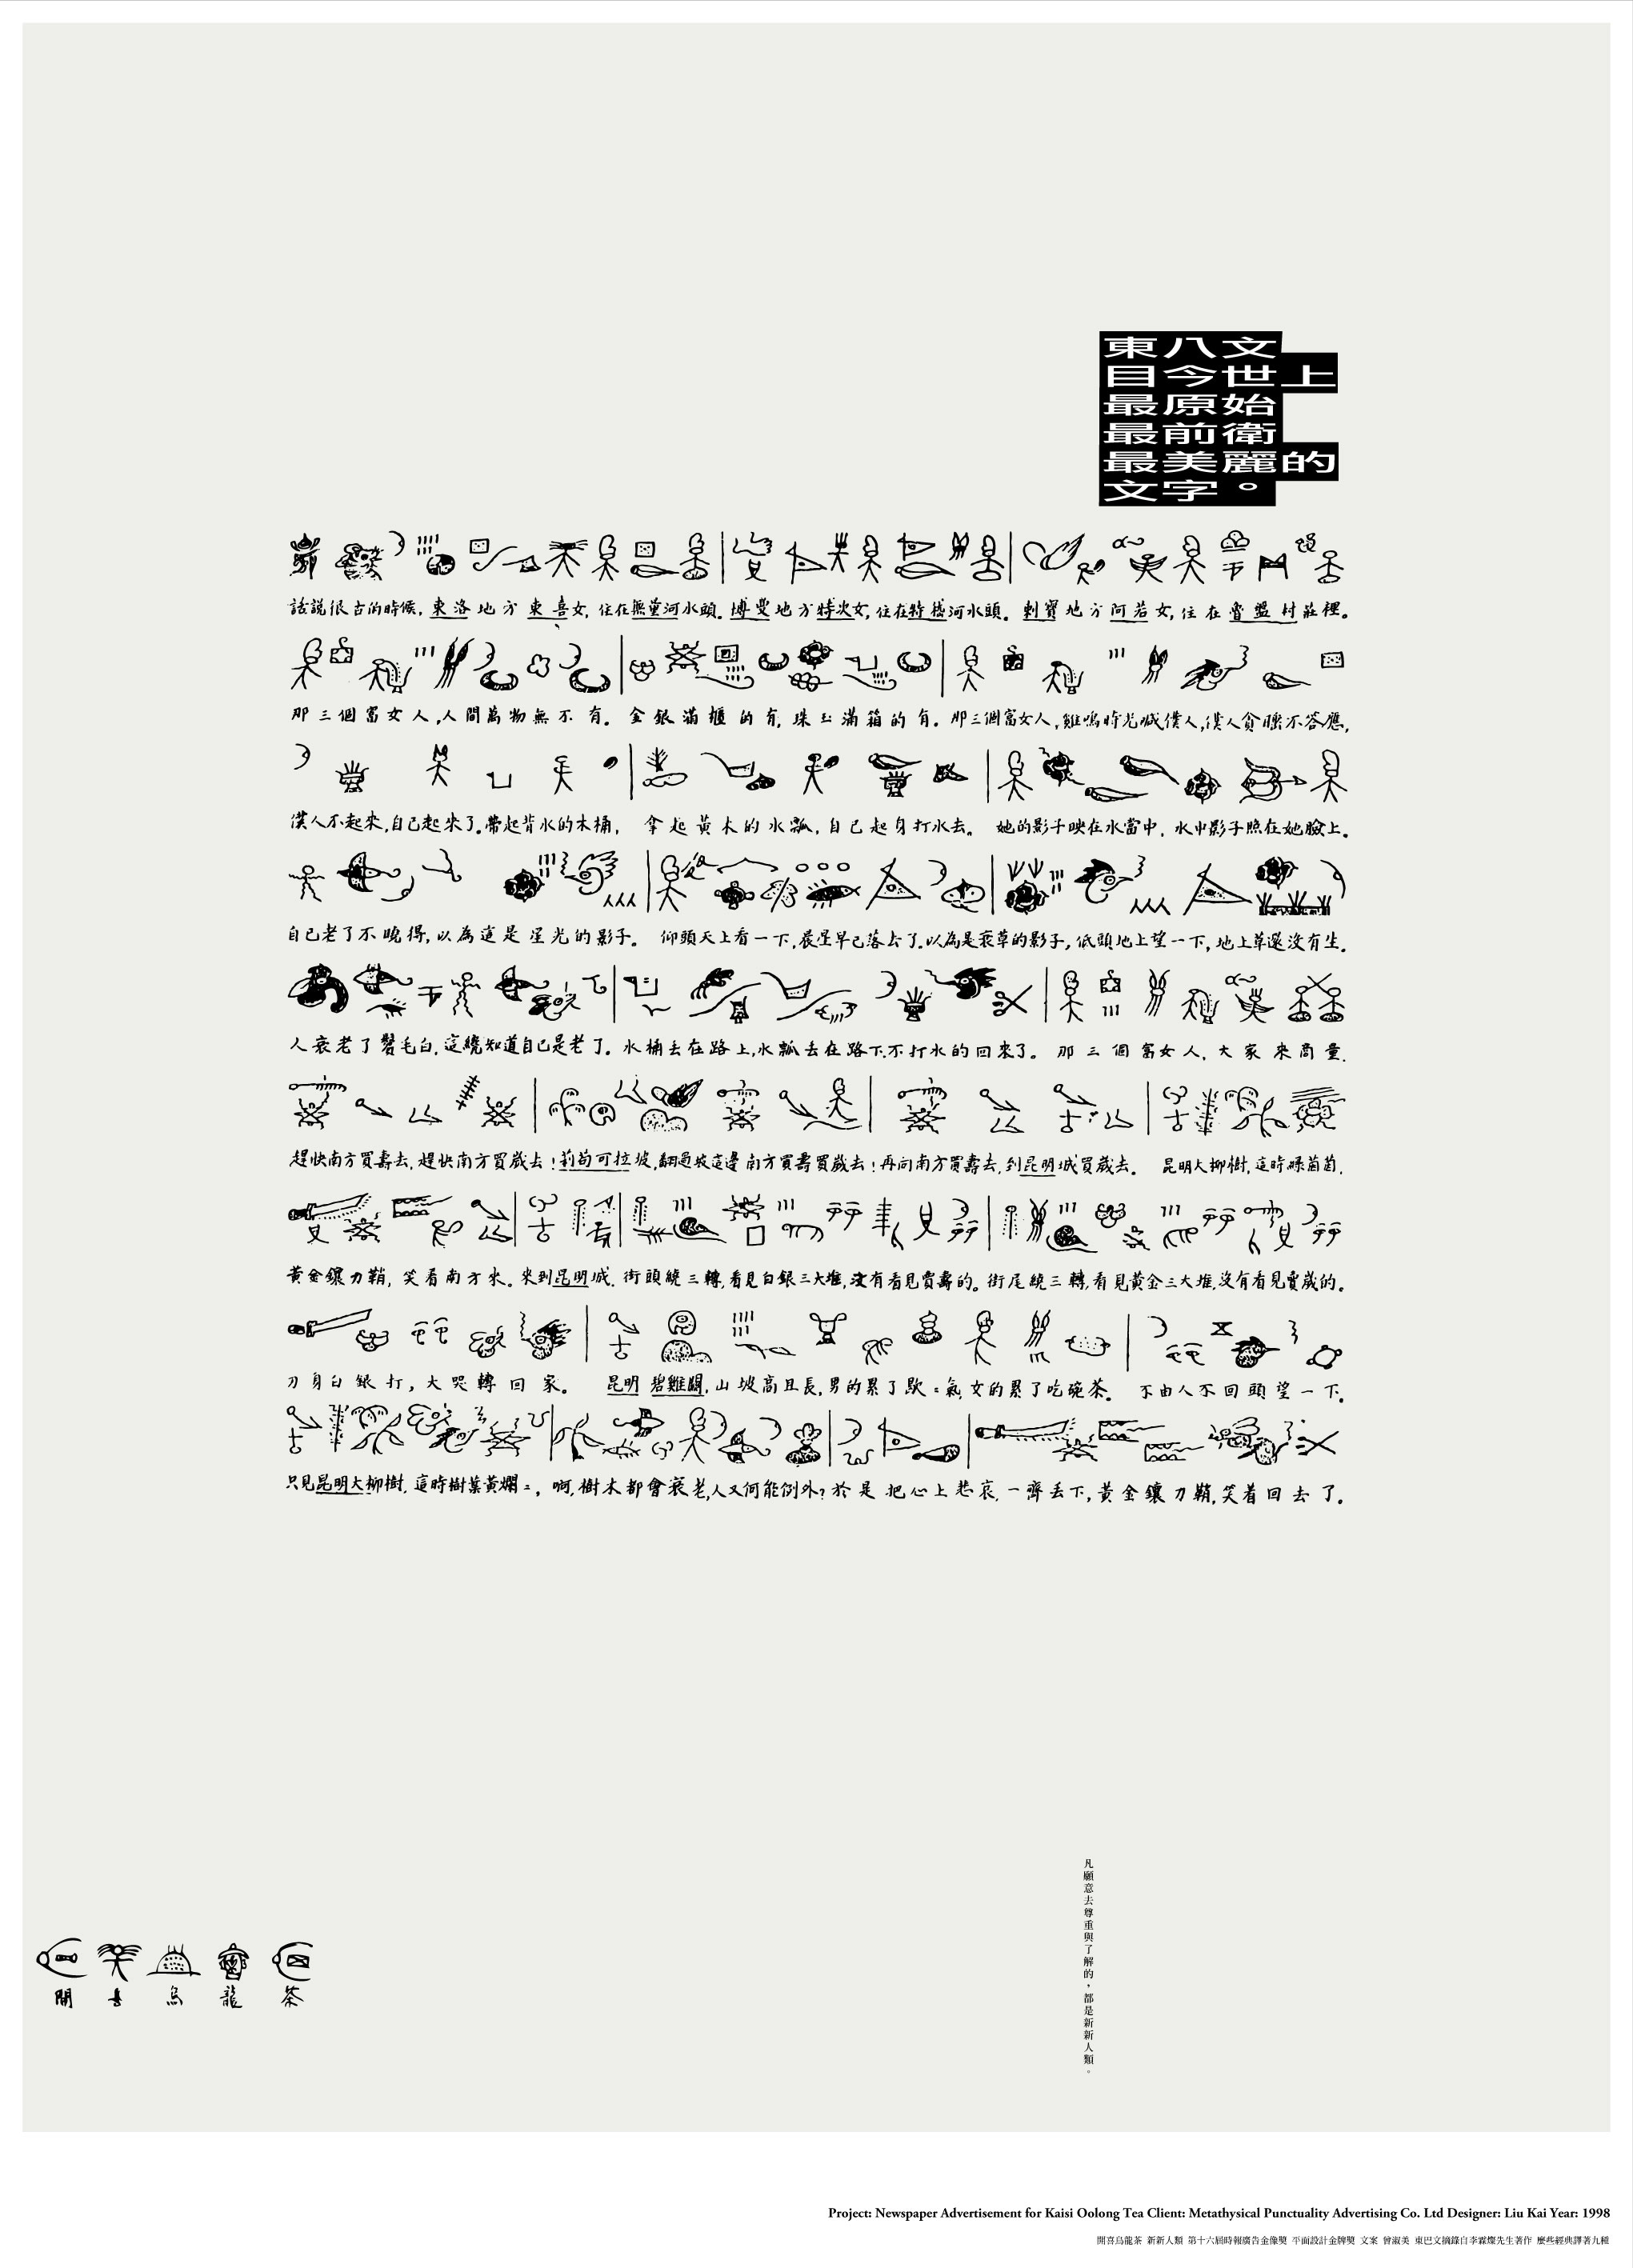 東八文
目今世上
最原始
最前衛
最美麗的
文字。
話說很古的時候,東洛地方東喜女,住在無量河水頭。博叟地方特次女,住在特樣河水頭。刺寶地方阿若女,住在魯盤村莊裡。
那三個富女人,人間萬物無不有。金銀滿櫃的有,珠玉滿箱的有。那三個富女人,雞鳴時光喊僕人,僕人貪睡不答應,
僕人不起來,自己起來了。帶起背水的木桶,拿起黃木的水瓢,自己起身打水去。她的影子映在水當中,水中影子照在她臉上。
自己老了不曉得,以為這是星光的影子。仰頭天上看一下,晨星早已落去了。以為是衰草的影子,低頭地上望一下,地上草還沒有生。
人衰老了鬢毛白,這纔知道自己是老了。水桶丟在路上,水瓢丟在路下,不打水的回來了。那三個富女人,大家來商量,
趕快南方買壽去,趕快南方買歲去!荊茍可拉坡,翻過坡這邊南方買壽買歲去!再向南方買壽去,到昆明城買歲去。昆明大柳樹,這時綠茵茵,
黃金鑲刀鞘,笑着南方來。來到昆明城,街頭繞三轉,看見白銀三大堆,沒有看見賣壽的。街尾繞三轉,看見黃金三大堆,沒有看見賣歲的。
刀身白銀打,大哭轉回家。昆明碧雞關,山坡高且長,男的累了歇=氣,女的累了吃碗茶。不由人不回頭望一下,
只見昆明大柳樹,這時樹葉黃爛=,啊,樹木都會衰老,人又何能例外?於是把心上悲哀,一齊丟下,黃金鑲刀鞘,笑着回去了。
凡願意去尊重與了解的,都是新新人類。
開喜烏龍茶
Project: Newspaper Advertisement for Kaisi Oolong Tea Client: Metathysical Punctuality Advertising Co. Ltd Designer: Liu Kai Year: 1998
開喜烏龍茶 新新人類 第十六屆時報廣告金像獎 平面設計金牌獎 文案 曾淑美 東巴文摘錄自李霖燦先生著作 麼些經典譯著九種